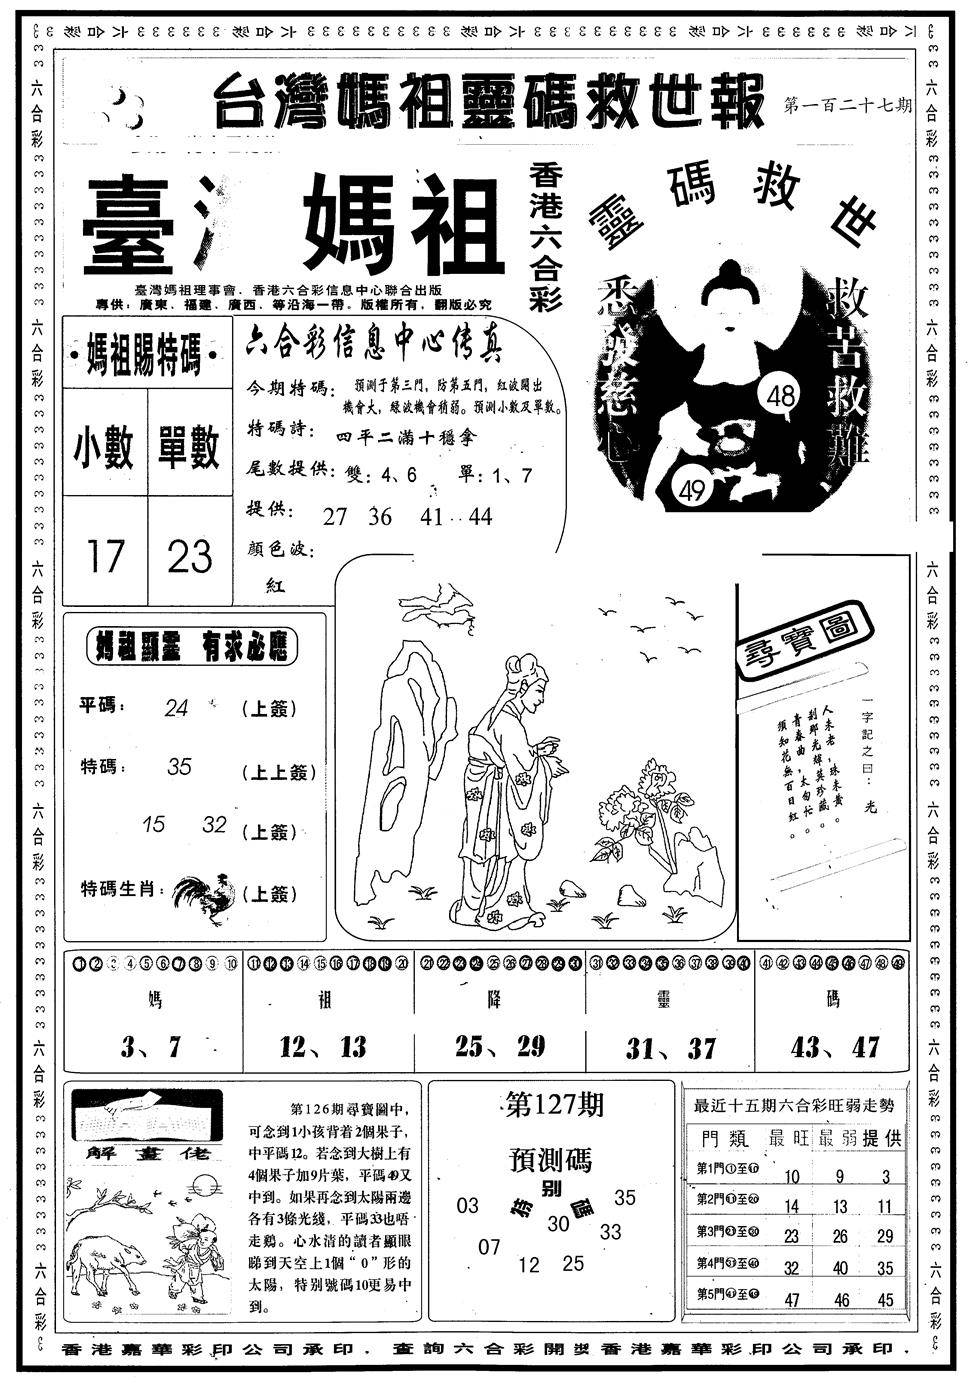 台灣媽祖靈碼救世報
第一百二十七期
臺灣 媽祖
香港六合彩
靈碼救世
悉發慈心
救苦救難
48
49
臺灣媽祖理事會．香港六合彩信息中心聯合出版
專供：廣東．福建．廣西．等沿海一帶。版權所有，翻版必究
·媽祖賜特碼·
小數 單數
17 23
六合彩信息中心传真
今期特碼：預測于第三門，防第五門，紅波開出
機會大，綠波機會稍弱。預測小數及單數。
特碼詩：四平二滿十穩拿
尾數提供：雙：4、6 單：1、7
提供：27 36 41 44
顏色波：
紅
媽祖顯靈 有求必應
平碼：24 (上簽)
特碼：35 (上上簽)
15 32 (上簽)
特碼生肖：(上簽)
尋寶圖
一字記之曰：光
人未老，珠未黃。
剎那光輝莫珍藏。
青春曲，太匆忙。
須知花無百日紅。
①②③④⑤⑥⑦⑧⑨⑩ ⑪⑫⑬⑭⑮⑯⑰⑱⑲⑳ ㉑㉒㉓㉔㉕㉖㉗㉘㉙㉚ ㉛㉜㉝㉞㉟㊱㊲㊳㊴㊵ ㊶㊷㊸㊹㊺㊻㊼㊽㊾
媽 祖 降 靈 碼
3、7 12、13 25、29 31、37 43、47
解畫佬
第126期尋寶圖中，
可念到1小孩背着2個果子，
中平碼12。若念到大樹上有
4個果子加9片葉，平碼49又
中到。如果再念到太陽兩邊
各有3條光綫，平碼33也唔
走鷄。心水清的讀者顯眼
睇到天空上1個“0”形的
太陽，特别號碼10更易中
到。
第127期
預測碼
特别圖
03 35
30 33
07
12 25
最近十五期六合彩旺弱走勢
門類 最旺 最弱 提供
第1門①至⑩ 10 9 3
第2門⑪至⑳ 14 13 11
第3門㉑至㉚ 23 26 29
第4門㉛至㊵ 32 40 35
第5門㊶至㊾ 47 46 45
香港嘉華彩印公司承印．查詢六合彩開獎香港嘉華彩印公司承印．